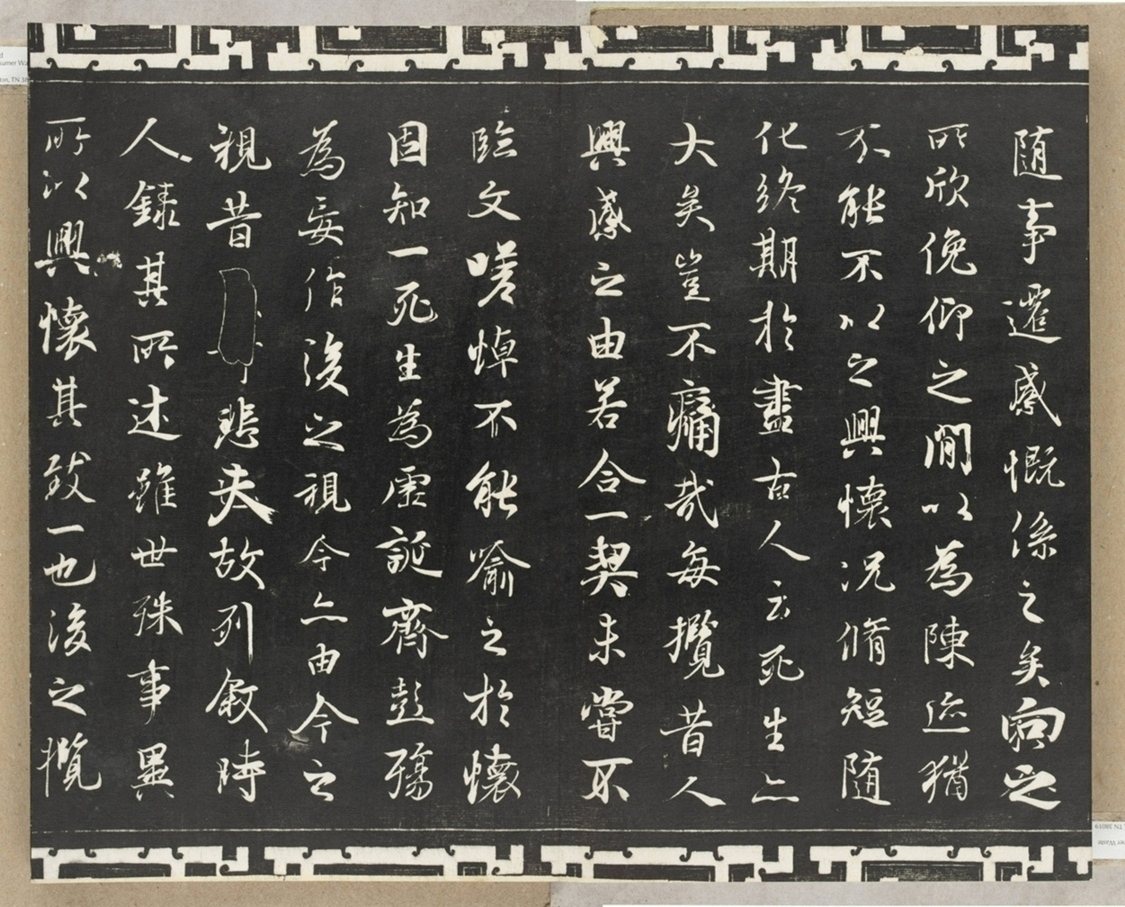 隨事遷感慨係之矣向之
所欣俛仰之閒以為陳迹猶
不能不以之興懷況脩短隨
化終期於盡古人云死生亦
大矣豈不痛哉每攬昔人
興感之由若合一契未嘗不
臨文嗟悼不能喻之於懷
固知一死生為虛誕齊彭殤
為妄作後之視今亦由今之
視昔悲夫故列敘時
人錄其所述雖世殊事異
所以興懷其致一也後之攬